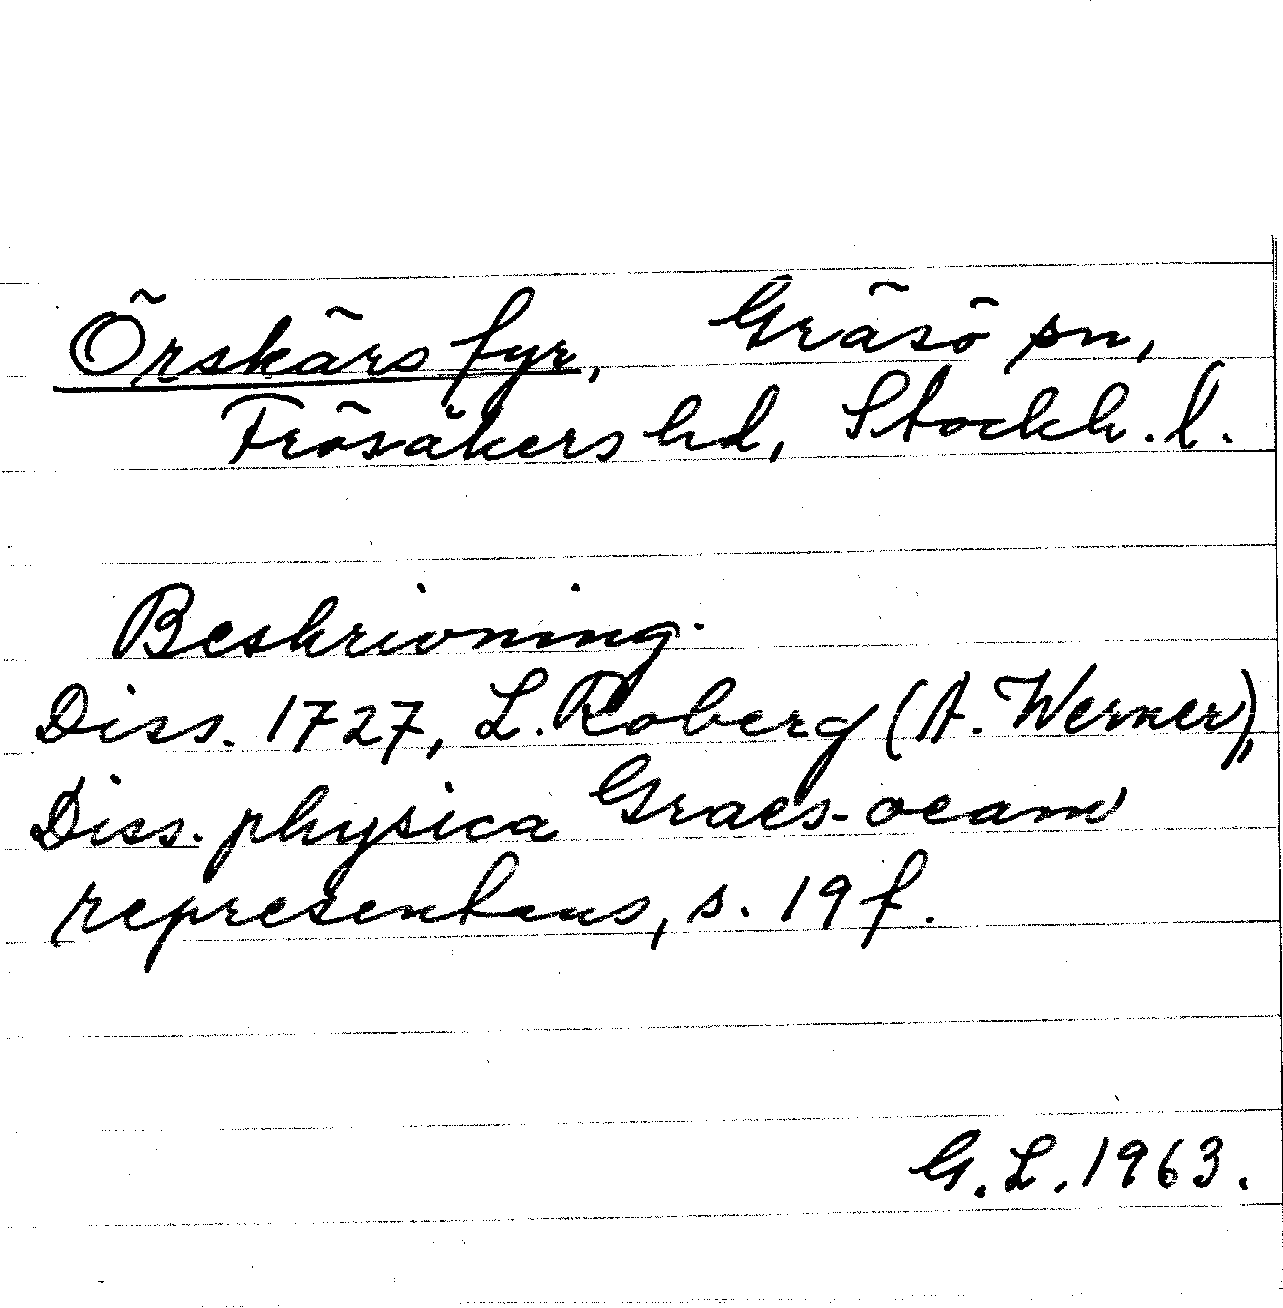 Örskärs fyr, Gräsö sn,
Frösåkers hd, Stockh. l.
Beskrivning.
Diss. 1727, L. Roberg (A. Werner),
Diss. physica Graes-oeam
repraesentans, s. 19 f.
G. L. 1963.